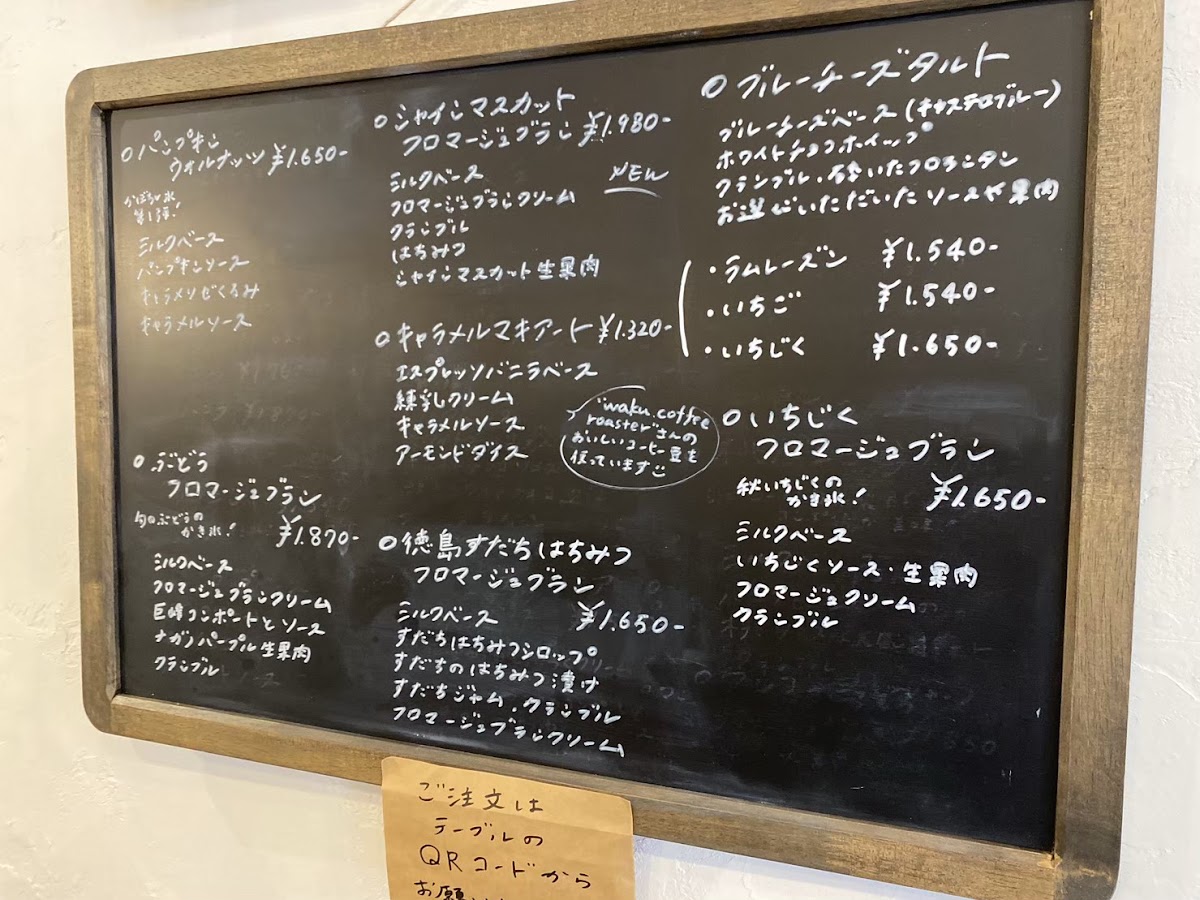 ○パンプキン
ウォルナッツ ¥1.650-
かぼちゃ氷
第1弾!
ミルクベース
パンプキンソース
キャラメリゼくるみ
キャラメルソース
○ぶどう
フロマージュブラン
旬のぶどうの
かき氷!
¥1.870-
ミルクベース
フロマージュブランクリーム
巨峰コンポートとソース
ナガノパープル生果肉
クランブル
○シャインマスカット
フロマージュブラン ¥1.980-
NEW
ミルクベース
フロマージュブランクリーム
クランブル
はちみつ
シャインマスカット生果肉
○キャラメルマキアート ¥1.320-
エスプレッソバニラベース
練乳クリーム
キャラメルソース
アーモンドダイス
"waku coffee
roaster"さんの
おいしいコーヒー豆を
使っています
○徳島すだちはちみつ
フロマージュブラン
ミルクベース ¥1.650-
すだちはちみつシロップ
すだちのはちみつ漬け
すだちジャム.クランブル
フロマージュブランクリーム
○ブルーチーズタルト
ブルーチーズベース(キャステロブルー)
ホワイトチョコホイップ
クランブル・砕いたフロランタン
お選びいただいたソースや果肉
・ラムレーズン ¥1.540-
・いちご ¥1.540-
・いちじく ¥1.650-
○いちじく
フロマージュブラン
秋いちじくの
かき氷!
¥1.650-
ミルクベース
いちじくソース・生果肉
フロマージュクリーム
クランブル
ご注文は
テーブルの
QRコードから
お願い